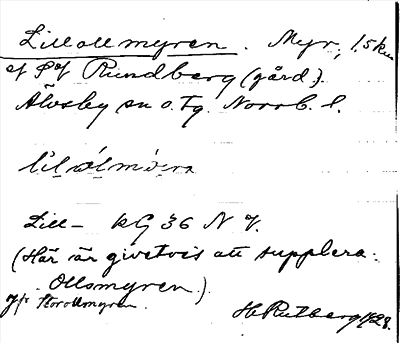 Lillollmyren. Myr, 1,5 km
af S of Rundberg (gård).
Älvsby sn o. Tg. Norrb. l.
Lill- kG 36 N 7.
(Här är givetvis att supplera:
Ollsmyren.)
Jfr Storollmyren.
H. Rutberg 1928.